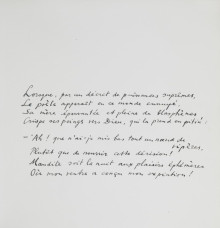 Lorsque, par un décret des puissances suprêmes,
Le Poëte apparaît en ce monde ennuyé,
Sa mère épouvantée et pleine de blasphèmes
Crispe ses poings vers Dieu, qui la prend en pitié :
– "Ah ! que n'ai-je mis bas tout un nœud de
vipères,
Plutôt que de nourrir cette dérision !
Maudite soit la nuit aux plaisirs éphémères
Où mon ventre a conçu mon expiation !